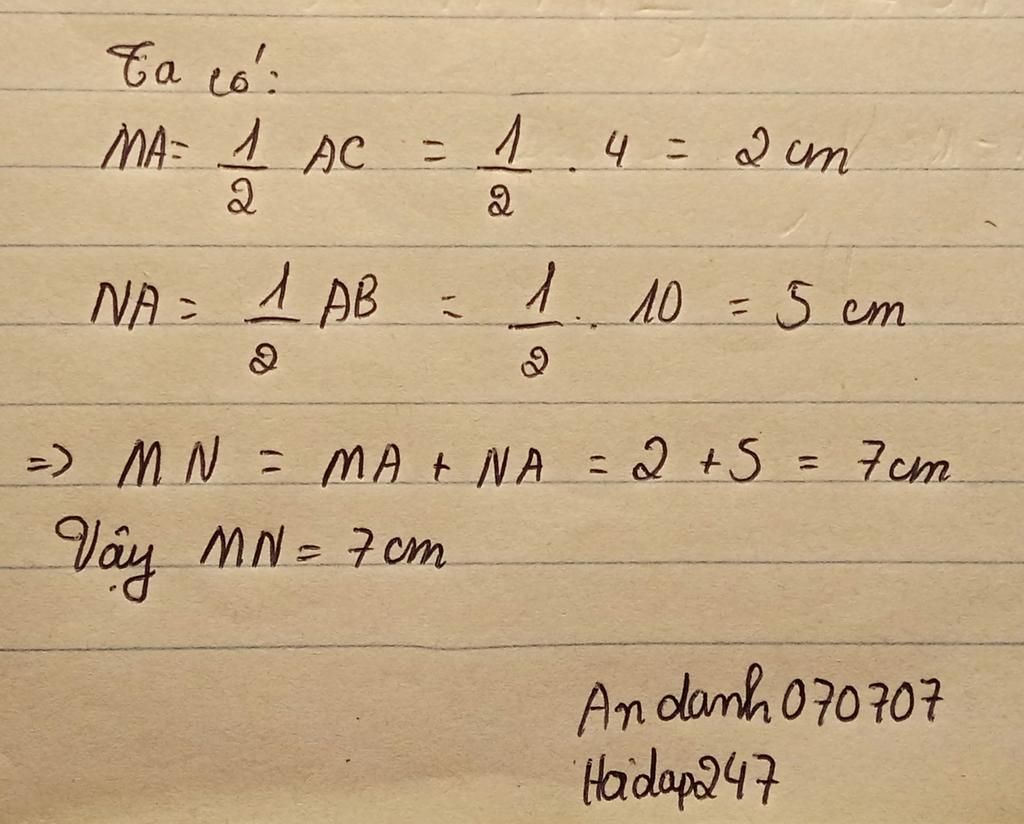 Ta có:
MA = 1/2 AC = 1/2 . 4 = 2 cm
NA = 1/2 AB = 1/2 . 10 = 5 cm
=> MN = MA + NA = 2 + 5 = 7 cm
Vậy MN = 7 cm
Andanh070707
Hoidap247